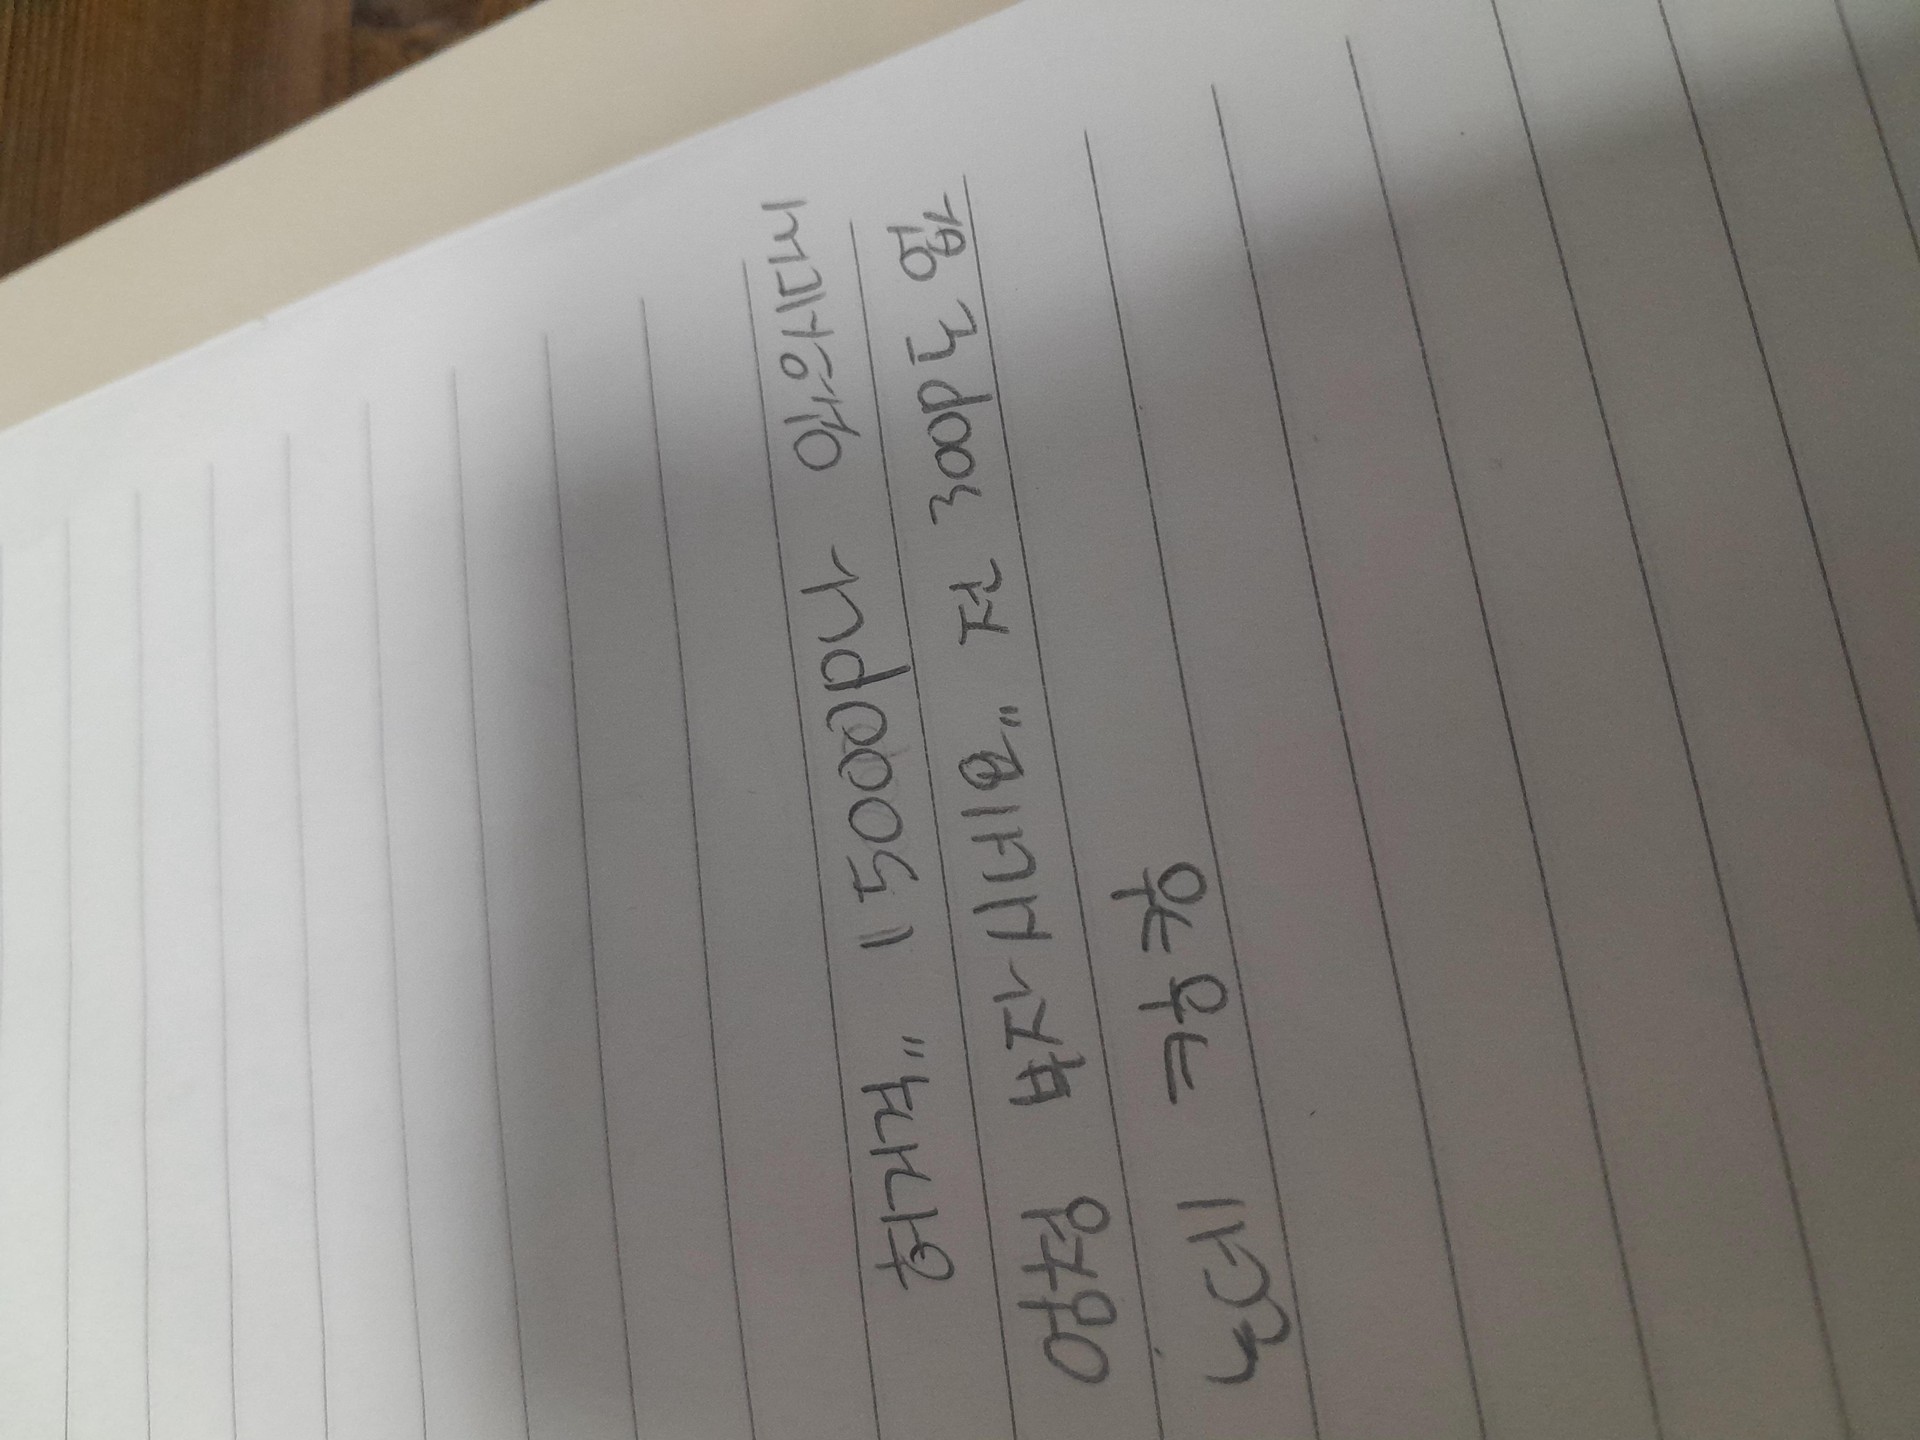 허거걱,, 15000p나 있으시다니
엄청 부자시네요,, 전 300p도 없
는데 ㅋㅋㅋㅋ